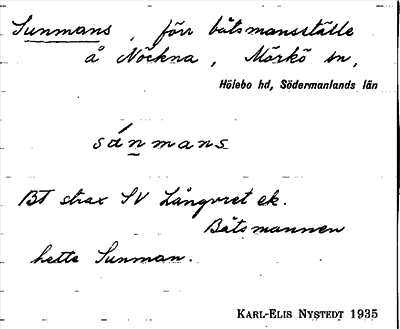 Sunmans, förr båtsmansställe
å Nöckna, Mörkö sn,
Hölebo hd, Södermanlands län
sánmans
BT strax SV Långvret ek.
Båtsmannen
hette Sunman.
KARL-ELIS NYSTEDT 1935